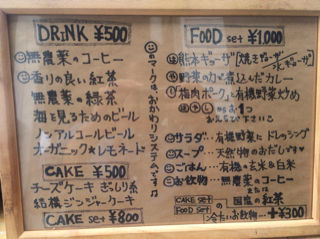 DRiNK ¥500
無農薬のコーヒー
香りの良い紅茶
無農薬の緑茶
畑を見るためのビール
ノンアルコールビール
オーガニック★レモネード
CAKE ¥500
チーズケーキ
結構ジンジャーケーキ
CAKE set ¥800
のマークは、おかわりシステムです♪
FOOD set ¥1,000
熊本ギョーザ[焼きギョーザ/水ギョーザ]
野菜の力で煮込んだカレー
梅肉ポーク」と有機野菜炒め
から1つ
おえらび下さい
サラダ…有機野菜にドレッシング
スープ…天然物のおだしです
ごはん…有機の玄米&白米
お飲物…無農薬のコーヒー
または
国産の紅茶
CAKE set
FOOD set
の冷たいお飲物…+¥300